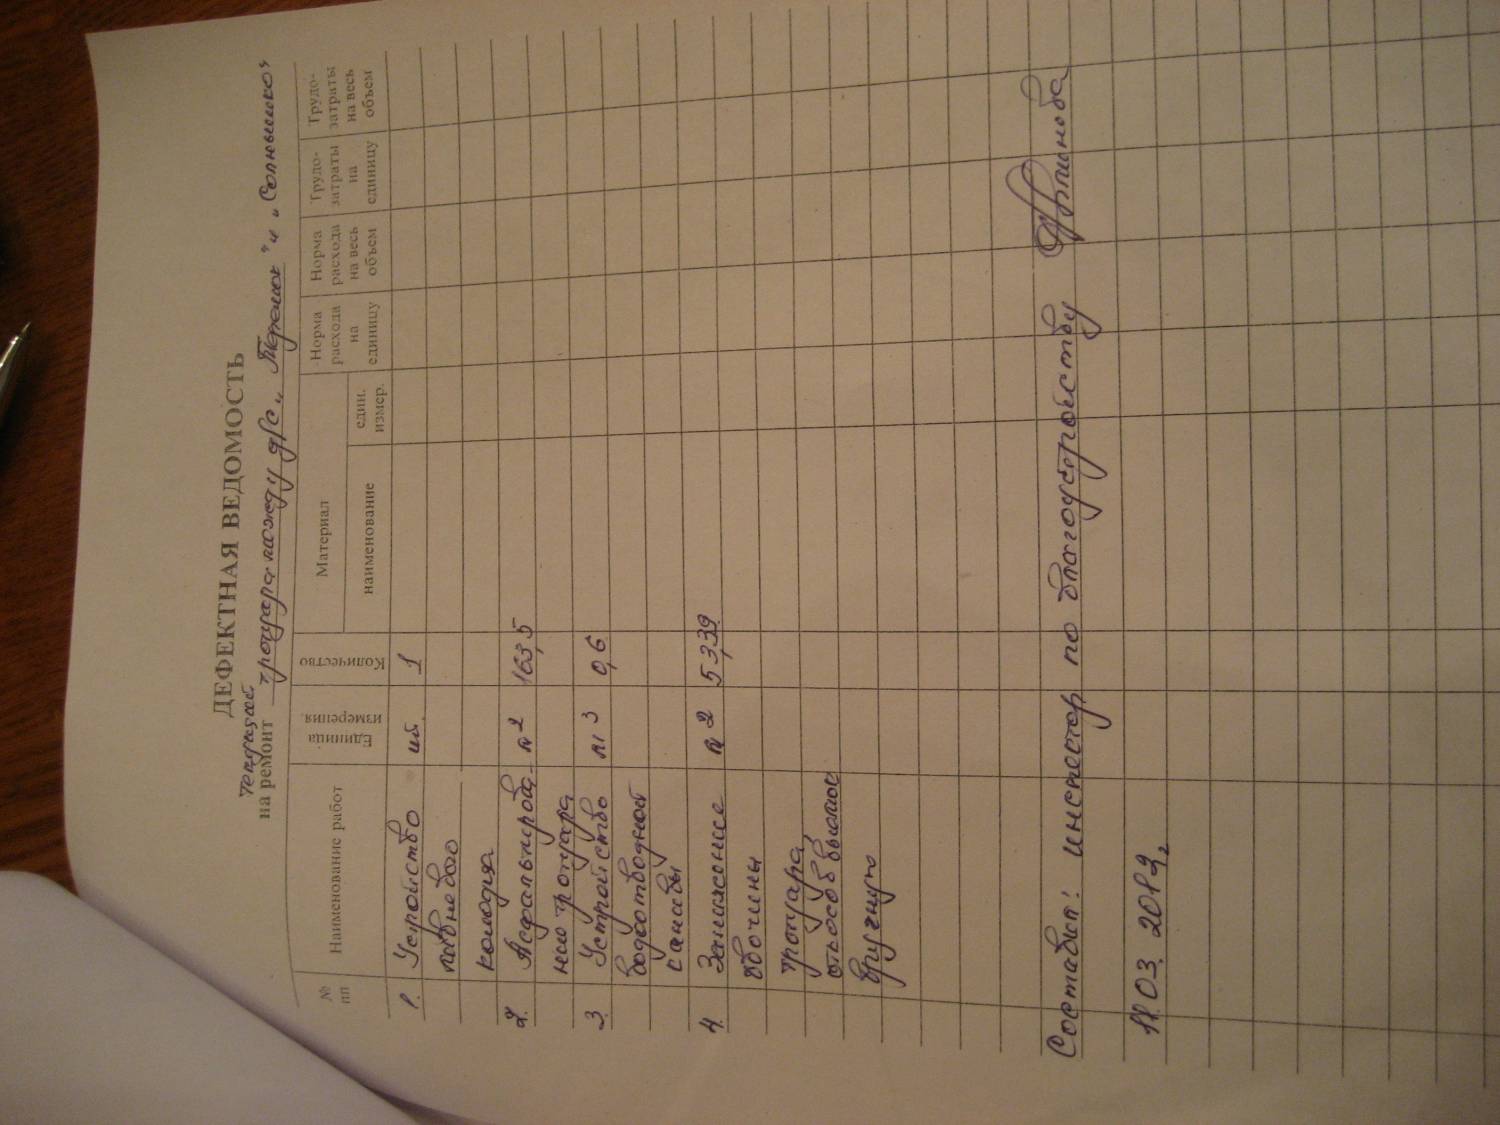 ДЕФЕКТНАЯ ВЕДОМОСТЬ
текущий
на ремонт тротуара между д/с „Теремок" и „Солнышко"
№ пп
Наименование работ
Единица измерения
Количество
Материал
наименование
един. измер.
Норма расхода на единицу
Норма расхода на весь объем
Трудо-затраты на единицу
Трудо-затраты на весь объем
1. Устройство шт. 1
ливневого
колодца
2. Асфальтирова м2 163,5
ние тротуара
3. Устройство м3 0,6
водоотводной
канавы
4. Занижение м2 53,39
обочины
тротуара
способом
вручную
Составил: инспектор по благоустройству
11.03.2019г.